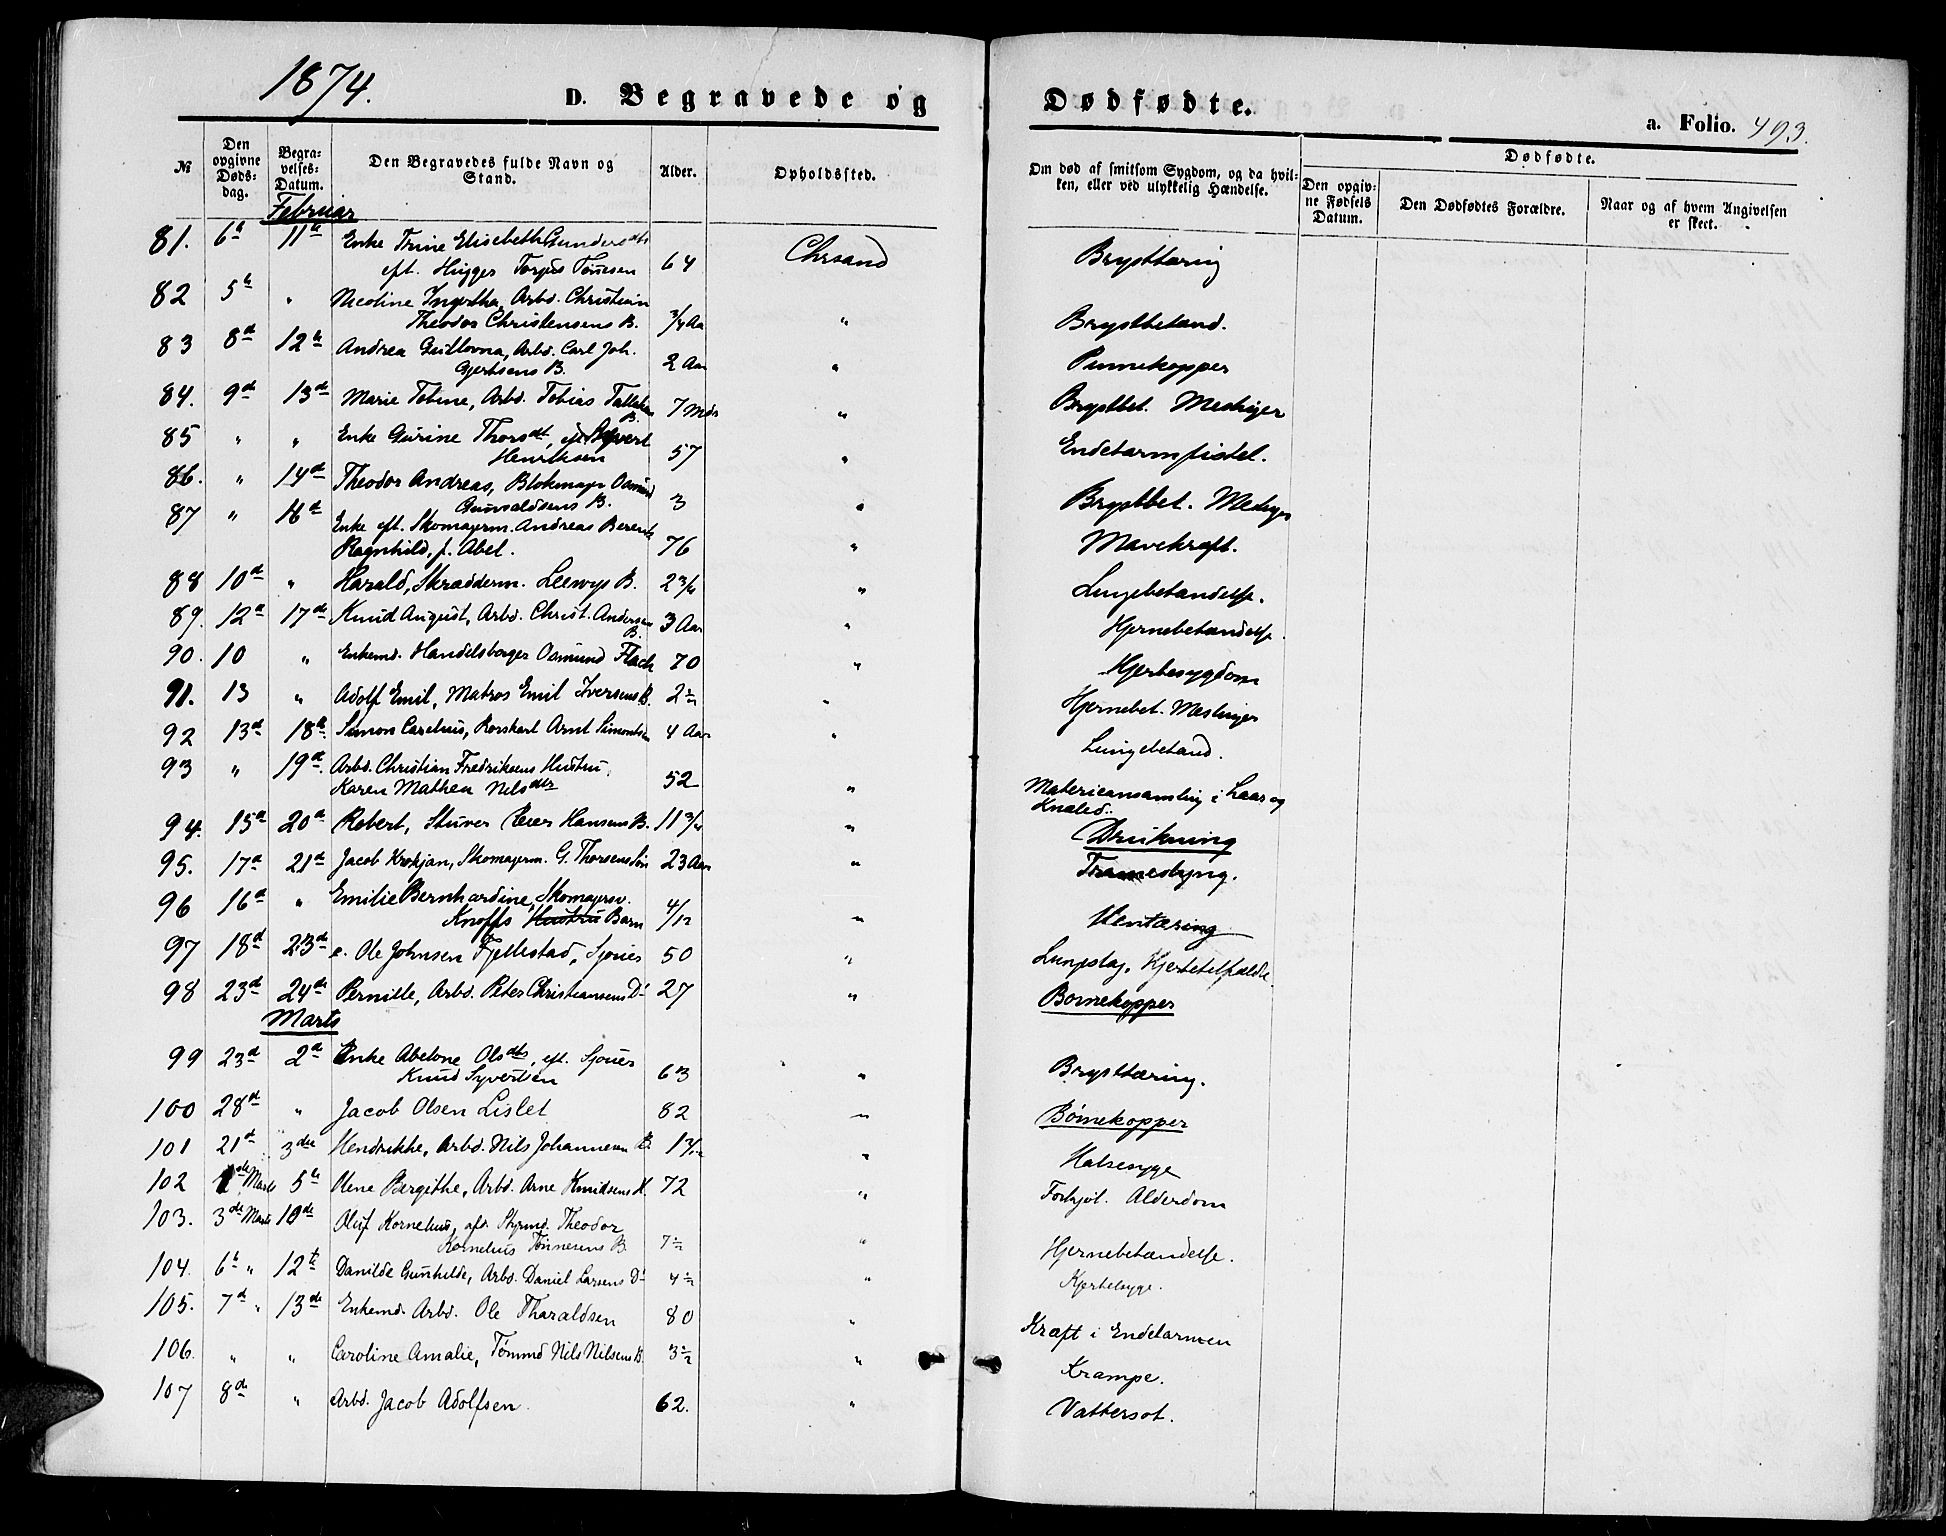 1874.
D. Begravede og Dødfødte.
a. Folio. 493.
№
Den opgivne Døds-dag.
Begra-velses-Datum.
Den Begravedes fulde Navn og Stand.
Alder.
Opholdssted.
Om død af smitsom Sygdom, og da hvil-ken, eller ved ulykkelig Hændelse.
Dødfødte.
Den opgiv-ne Fødsels Datum.
Den Dødfødtes Forældre.
Naar og af hvem Angivelsen er skeet.
Februar
81. 6h 11h Enke Trine Elisabeth Gundersdtr
eft. Hugger Torjus Tønesen 64 Chrsand Brysttæring
82 5h " Nicoline Ingertha, Arbd. Christian
Theodor Christensens B. 3/4 Aar " Brystbetænd.
83 8d 12h Andrea Gullovna, Arbd. Carl Joh.
Gjertsens B. 2 Aar " Pinnekopper
84. 9d 13d Marie Tobine, Arbd. Tobias
B. 7 Mdr " Brystbet. Meslinger
85 " " Enke Gurine Thorsdt, eft. Syvert
Henriksen 57 " Endetarmfistel.
86. " 14d Theodor Andreas, Blokmager Osmund
Gunvaldsens B. 3 " Brystbet. Meslinger
87 " 16d Enke eft. Skomagerm. Andreas Berents
Ragnhild, f. Abel. 76 " Mavekræft.
88 10d " Harald, Skrædderm. B. 2 3/4 " Lungebetændelse.
89. 12d 17de Knud August, Arbd. Christ. Andersen
B. 3 Aar " Hjernebetændelse.
90. 10 " Enkemd. Handelsborger Osmund 70 " Hjertesygdom
91. 13 " Adolf Emil, Matros Emil Iversens B. 2 " Hjernebet. Meslinger
92 13d 18d Simon Carelius, Rorskarl Arnt Simontsen 4 Aar " Lungebetænd.
93 " 19d. Arbd. Christian Fredriksens Hustru,
Karen Mathea Nilsdtr 52 " Materieansamling i Laar og
Knæled.
94. 15d 20d Robert, Stuver Peder Hansens B. 11 3/4 " Drukning
95. 17d 21d Jacob Krokjan, Skomagerm. G. Thorsens Søn 23 Aar "
96 16d " Emilie Bernhardine, Skomagersv.
Knoffs Hustru Barn 4/12 "
97 18d 23d e. Ole Johnsen Fjellestad, Sjouer 50 " Lungeslag, Hjertetilfælde
98 23d 24de Pernille, Arbd. Peter Christiansens D. 27 " Børnekopper
Marts
99 23d 2d Enke Abelone Olsdtr, eft. Sjouer
Knud Syvertsen 63 " Brysttæring.
100 28d " Jacob Olsen Lislet 82 " Børnekopper
101 21d 3die Hendrikke, Arbd. Nils Johannesen B. " Halssyge
102 1ste Marts 5h Olene Bergithe, Arbd. Arne Knudsens H. 72 " Forkjøl. Alderdom
103. 3de Marts 10de Oluf Kornelius, afd. Styrmd. Theodor
Kornelius Tønnesens B. 7 1/2 " Hjernebetændelse.
104. 6h " 12te Danilde Gunhilde, Arbd. Daniel Larsens D. 4 1/2 " Hjertesyge.
105. 7d " 13de Enkemd. Arbd. Ole Tharaldsen 80 " Kræft i Endetarmen
106. " " Caroline Amalie, Tømmd Nils Nilsens B. 3 1/2 " Krampe.
107 8de " Arbd. Jacob Adolfsen. 62. " Vattersot.